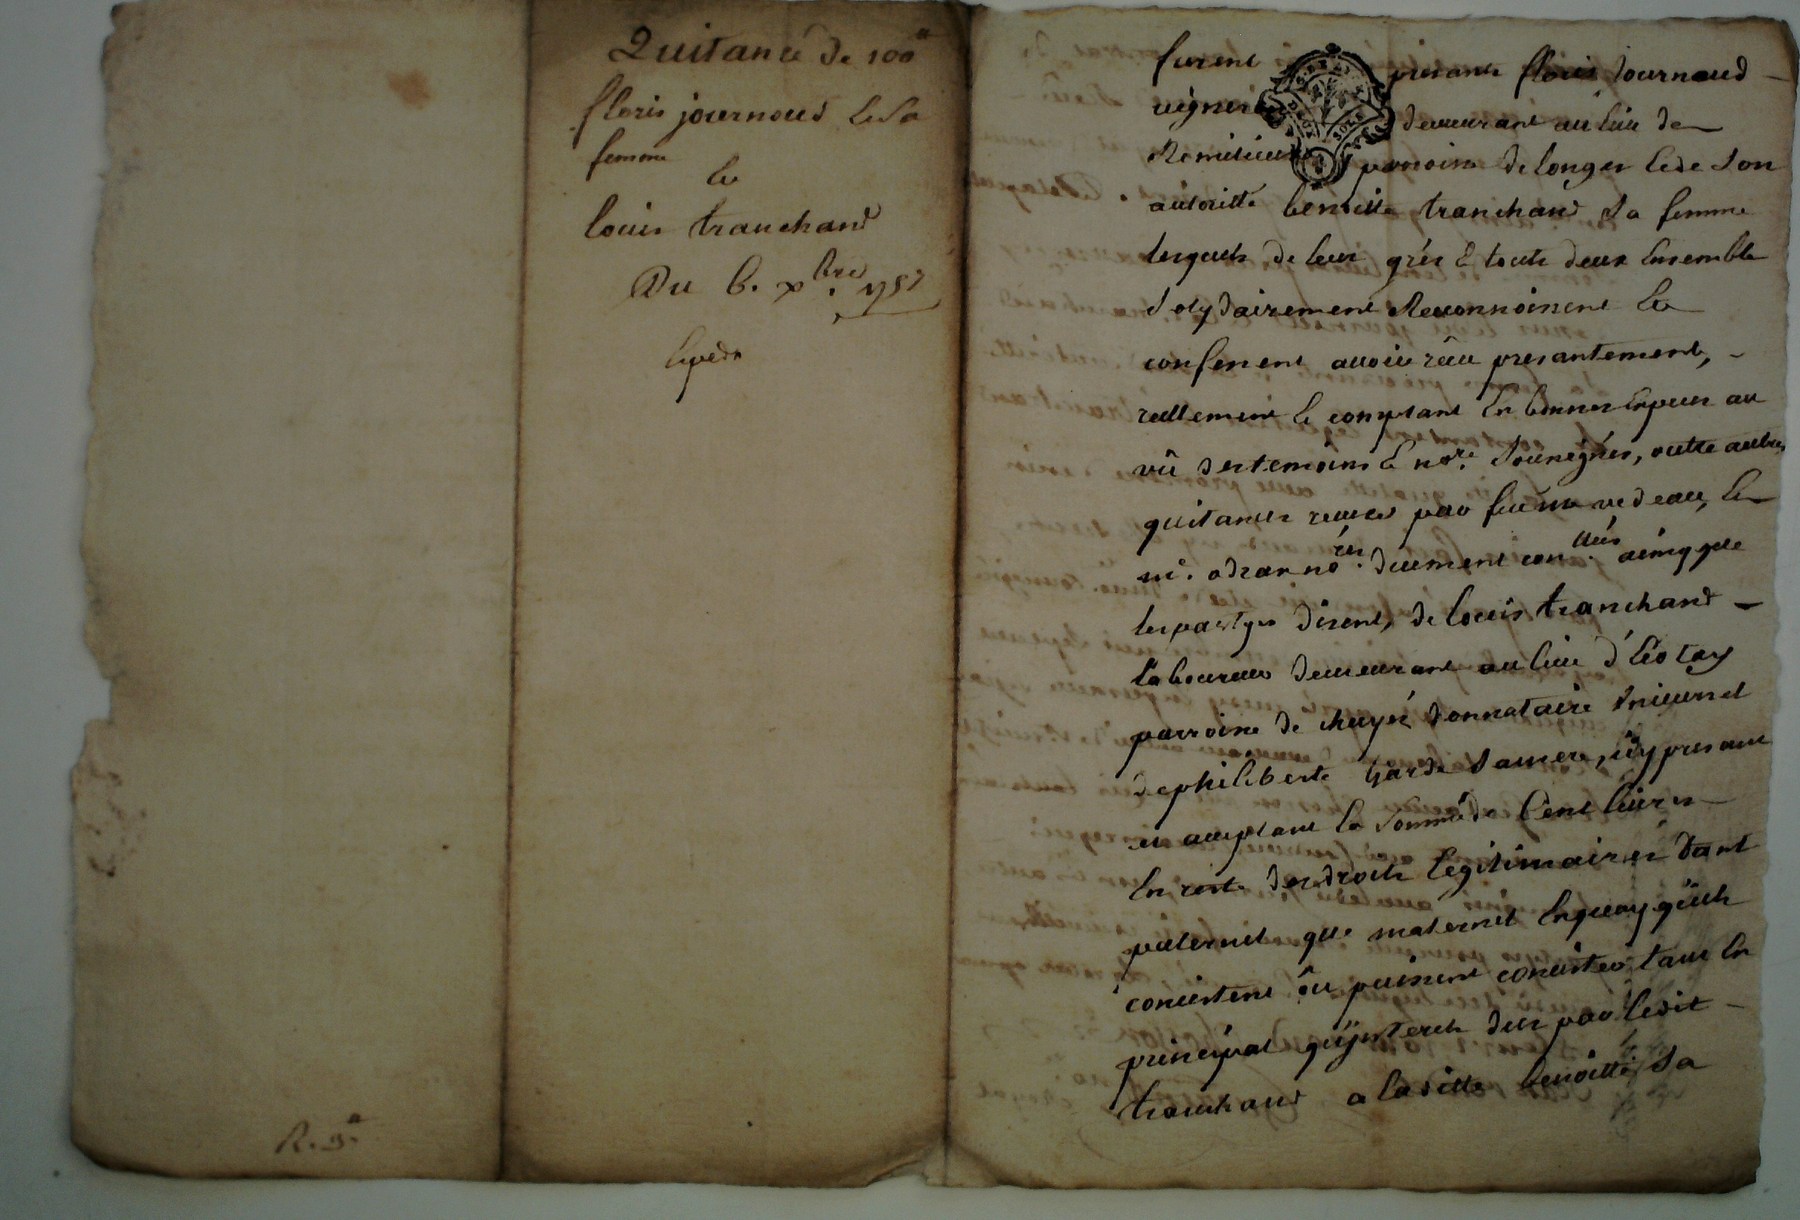 Quitance de 100#
floris journoud & sa
femme
&
louis tranchand
Du 6. xbre. 1757
Expedn
R. 3.#
furent presants floris Journoud
vigneron demeurant au lieu de
Remilieu parroisse de longes & de son
autoritté benoitte tranchand sa femme
lesquels de leur grés & touts deux Ensemble
solydairement Reconnoissent &
confessent avoir rêcu presantement,
reellement & comptant En bonnes Especes au
vû des temoins & nore. sousnés, outre autres
quitances receues par feu me vedeau, &
me. odrar nores. duement conllées ainsy que
les partyes disent, de louis tranchand
laboureur demeurant au lieu d'Eotay
parroisse de chuyés donnataire Universel
de philiberte garde sa mere, icy presant
et acceptant la somme de Cent livres
En reste des droits legitimaires tant
paternel que maternel Enquoy qu'ils
concistent ôu puissent concister tant En
principal qu'jnterets deus par ledit
tranchand a laditte benoitte sa